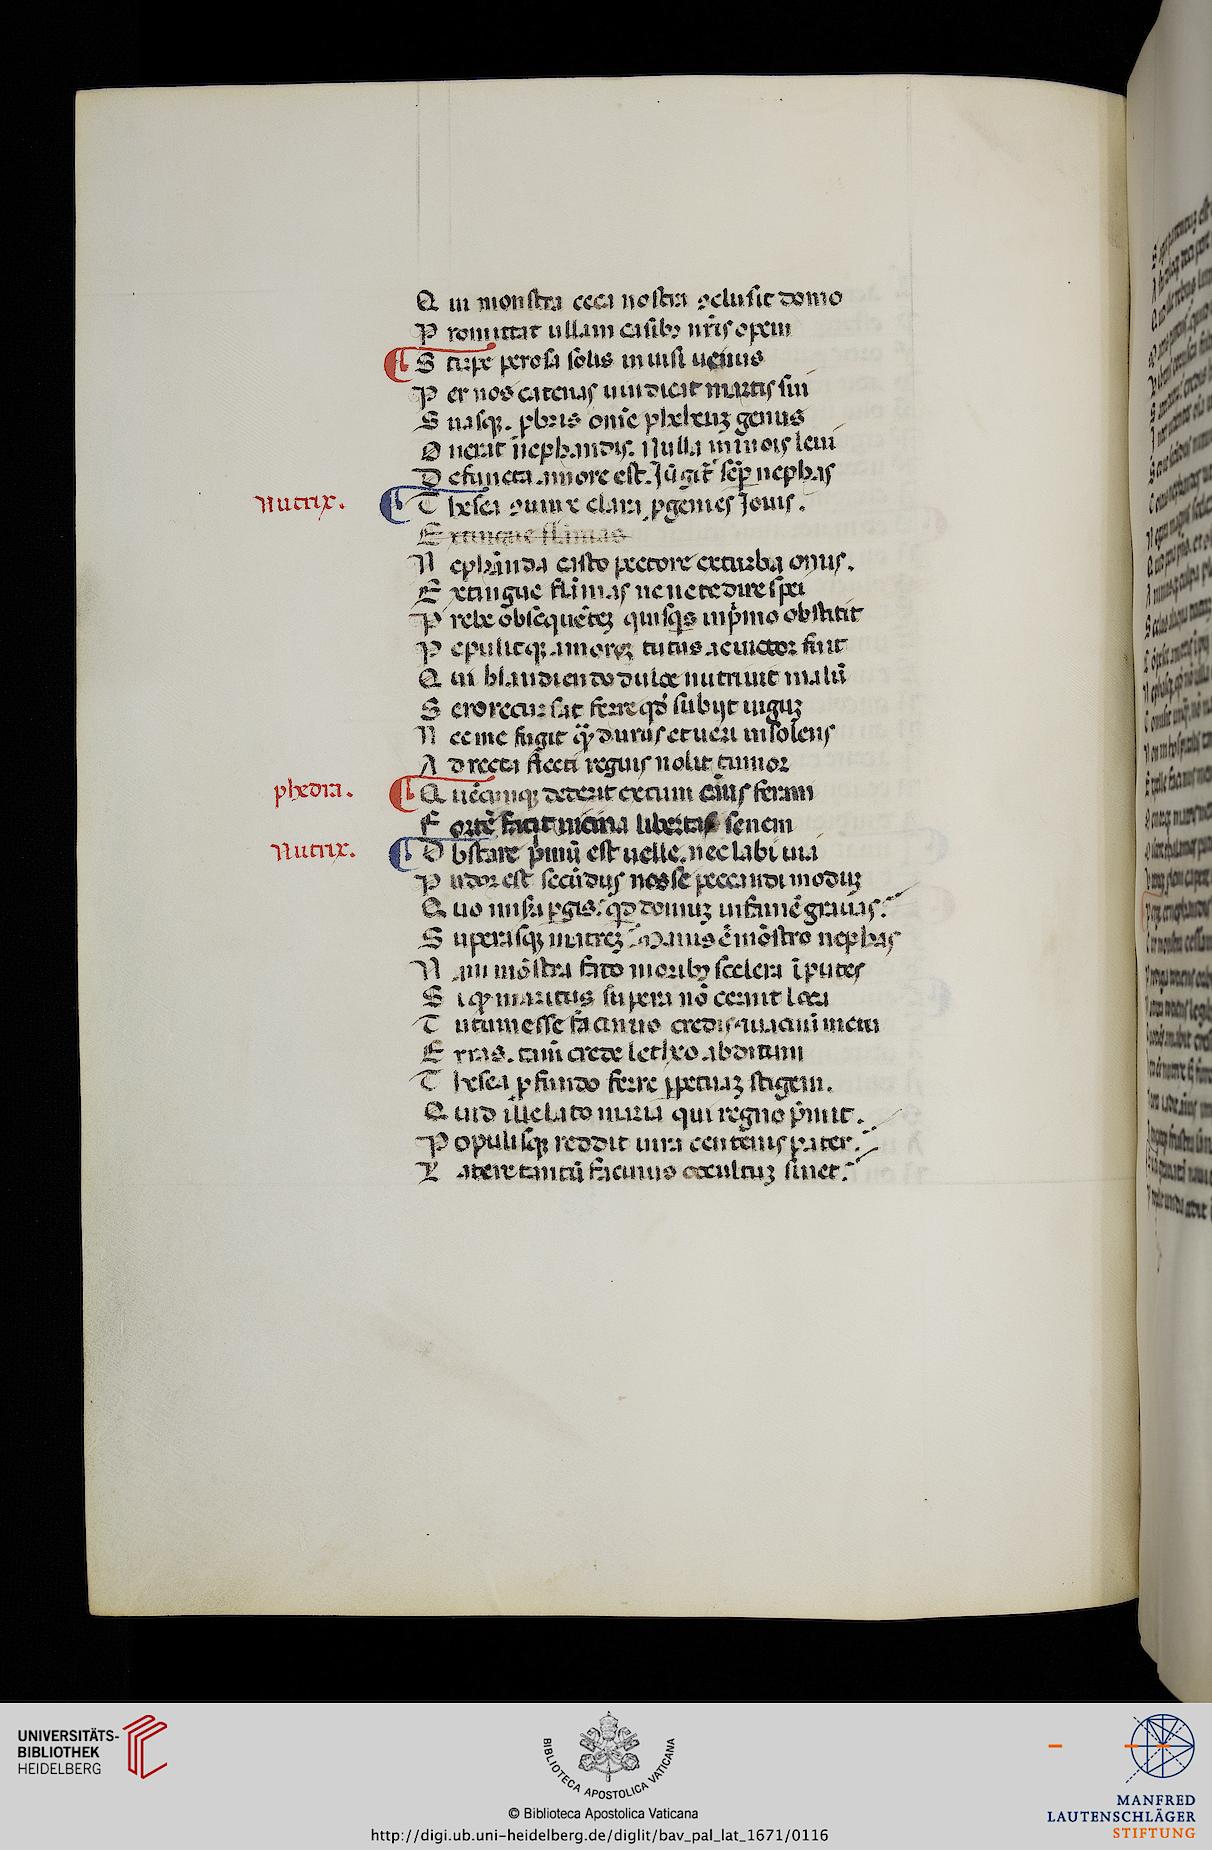 Q ui monstra ceca nostra reclusit domo
P romittat ullam casibꝫ nr̄is opem
S tirpe perosa solis inuisi uenus
P er nos catenas uindicat martis sui
S uasqꝫ. ꝓbris om̄e phebeuꝫ genus
O nerat nephandis. Nulla minois leui
D efuncta amore est. Jūgit͛ semꝑ nephas
Nutrix.
T hesea coniunx clara ꝓgenies Jouis.
E xtingue flāmas
N ephanda casto pectore exturba ocius.
E xtingue flāmas neue te dire spei
P rebe obsequēteꝫ quisqͥs in pͥmo obstitit
P epulitqꝫ amoreꝫ tutus ac uictor fuit
Q ui blandiendo dulce nutriuit malū
S ero recusat ferre qd̓ subijt iuguꝫ
N ec me fugit qͣꝫ durus et ueri insolens
A d recta flecti regius nolit tumor
phedra.
Q uēcunqꝫ dederit exitum casus feram
F ortē facit uicina libertas senem
Nutrix.
O bstare pͥmū est uelle. nec labi uia
P udor est secūdus nosse peccandi moduꝫ
Q uo misera ꝑgis. qd̓ domuꝫ infamē grauas.
S uperasqꝫ matreꝫ. Maius ē mōstro nephas
N am mōstra fato moribꝫ scelera īputes
S i qꝫ maritus supera nō cernit loca
T utum esse facinus credis uacuū metu
E rras. tenͥ crede letheo abditum
T hesea ꝓfundo ferre ꝑpetuaꝫ stigem.
Q uid ille lato maria qui regno pͥmit.
P opulisqꝫ reddit iura centenis pater.
L atere tantū facinus occultuꝫ sinet.
UNIVERSITÄTS-
BIBLIOTHEK
HEIDELBERG
BIBLIOTECA APOSTOLICA VATICANA
© Biblioteca Apostolica Vaticana
http://digi.ub.uni-heidelberg.de/diglit/bav_pal_lat_1671/0116
MANFRED
LAUTENSCHLÄGER
STIFTUNG